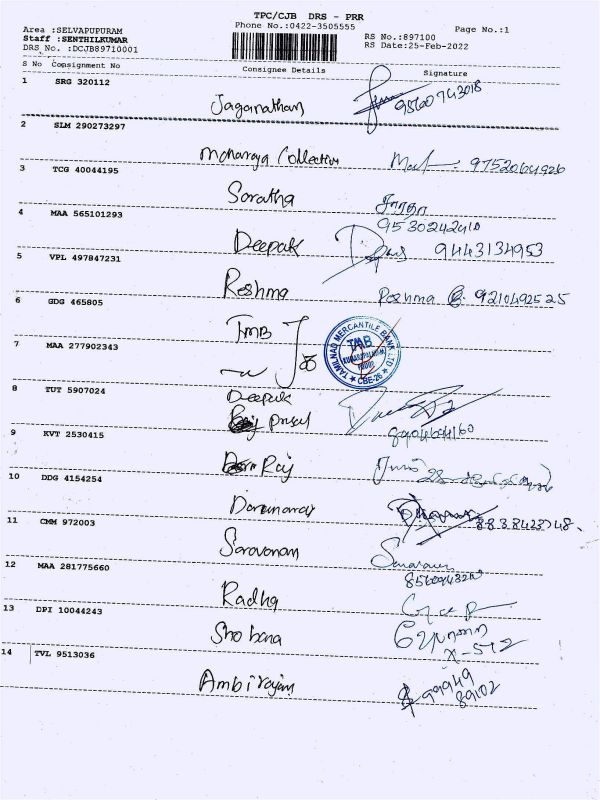 TPC/CJB DRS - PRR
Area :SELVAPUPURAM
Phone No.:0422-3505555
Page No.:1
Staff :SENTHILKUMAR
RS No.:897100
DRS No. :DCJB89710001
RS Date:25-Feb-2022
S No Consignment No Consignee Details Signature
1 SRG 320112
Jaganathan 9560743018
2 SLM 290273297
Collection 9752064926
3 TCG 40044195
Saratha சாரதா
9530242410
4 MAA 565101293
Deepak 9443134953
5 VPL 497847231
Reshma Reshma 9210492525
6 GDG 465805
TMB
TAMILNAD MERCANTILE BANK LTD
TMB
CBE-26
7 MAA 277902343
8 TUT 5907024
Deepak
9 KVT 2530415
Raj
10 DDG 4154254
11 CMM 972003
Saravanan
12 MAA 281775660
Radha
13 DPI 10044243
Shobana
x-512
14 TVL 9513036
Ambirajan 99949
89102